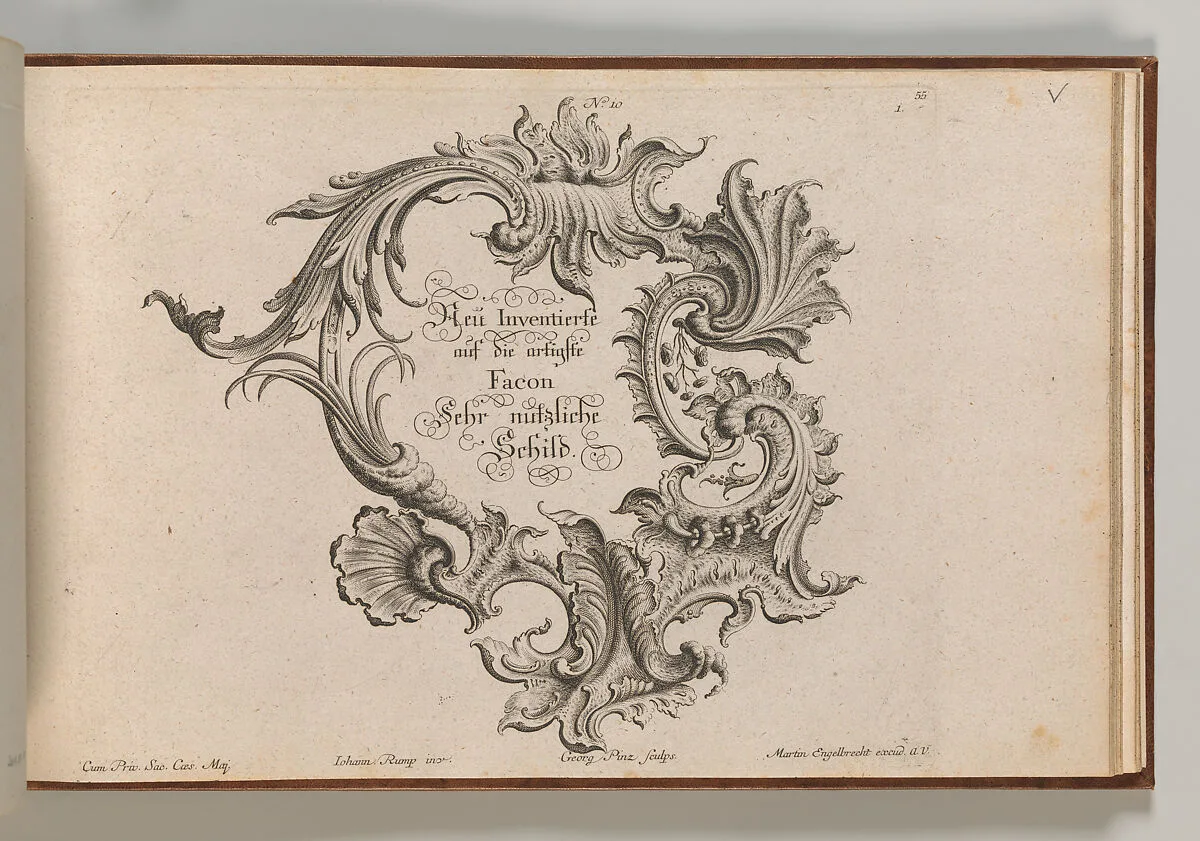 No. 10
55
1.
V
Neü Inventierte
auf die artigste
Facon
Sehr nutzliche
Schild.
Cum Priv. Sac. Cæs. Maj.
Iohann Rump inv.
Georg Pinz sculps.
Martin Engelbrecht excud. A.V.